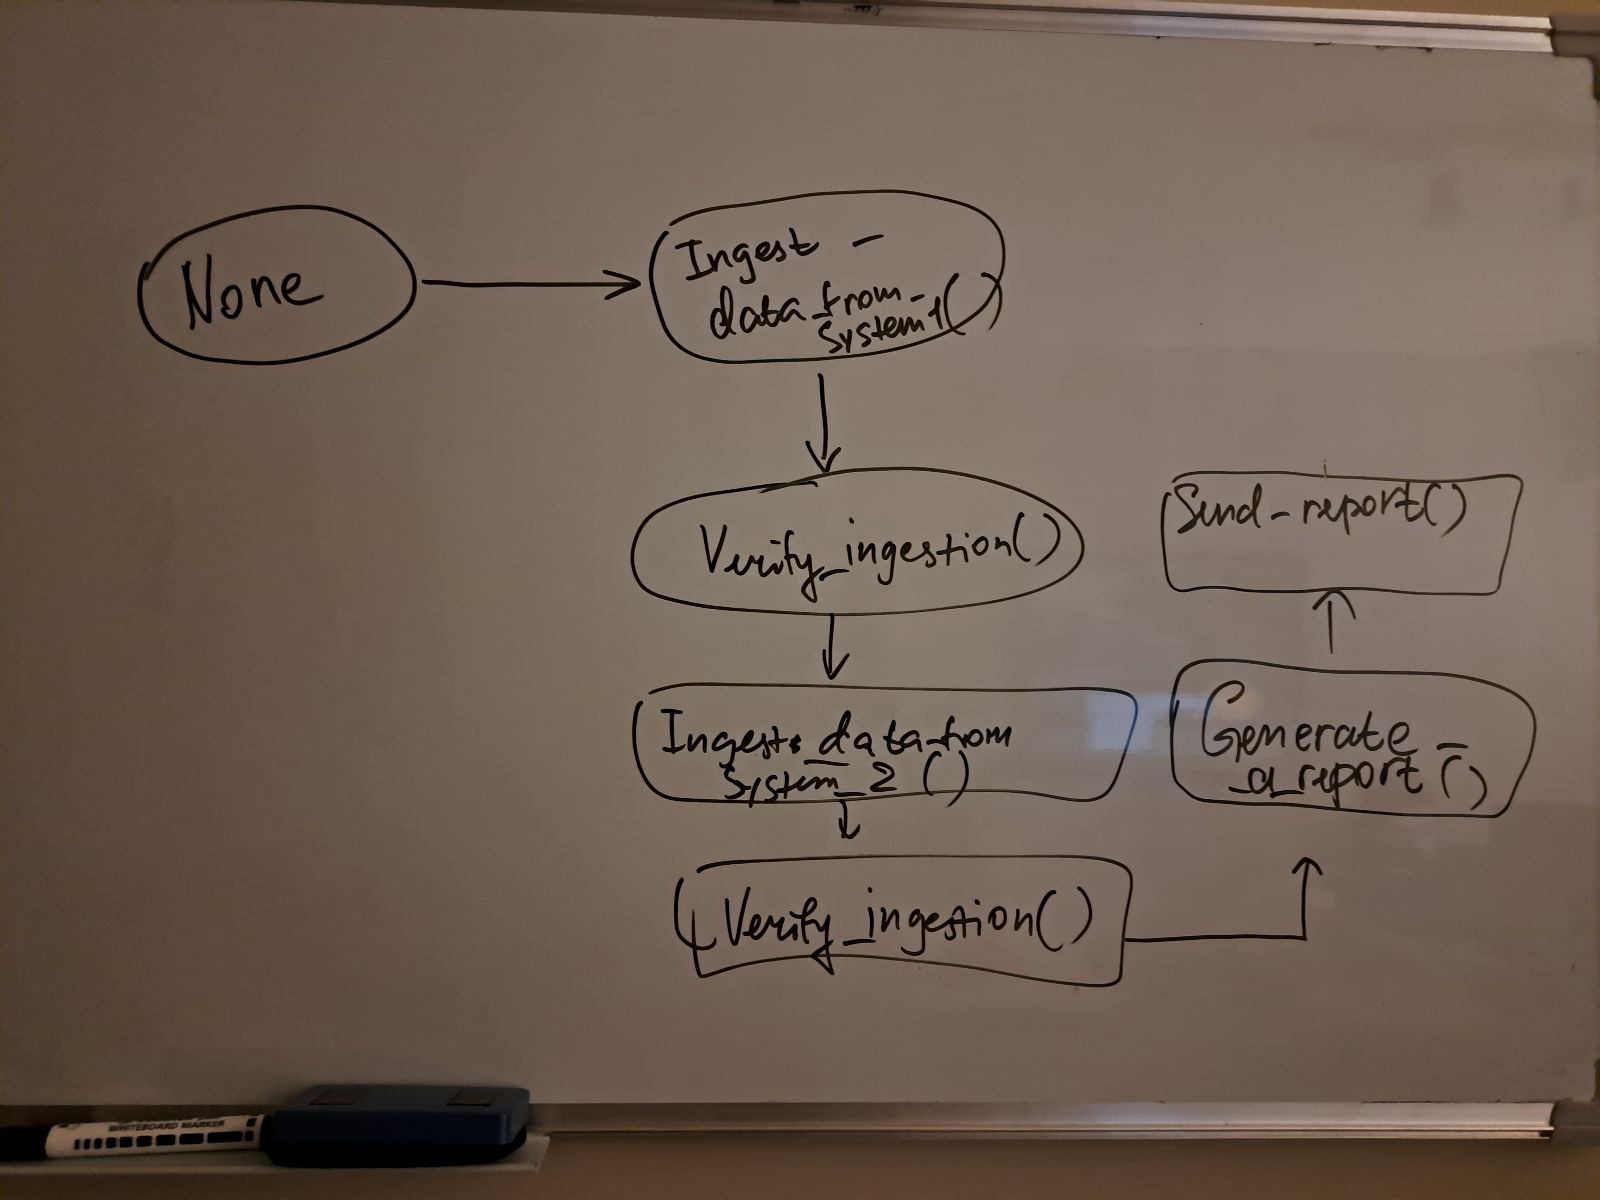 None
Ingest_
data_from_
system_1()
Verify_ingestion()
Ingest_data_from
system_2()
Verify_ingestion()
Generate_
_a_report()
Send_report()
WHITEBOARD MARKER